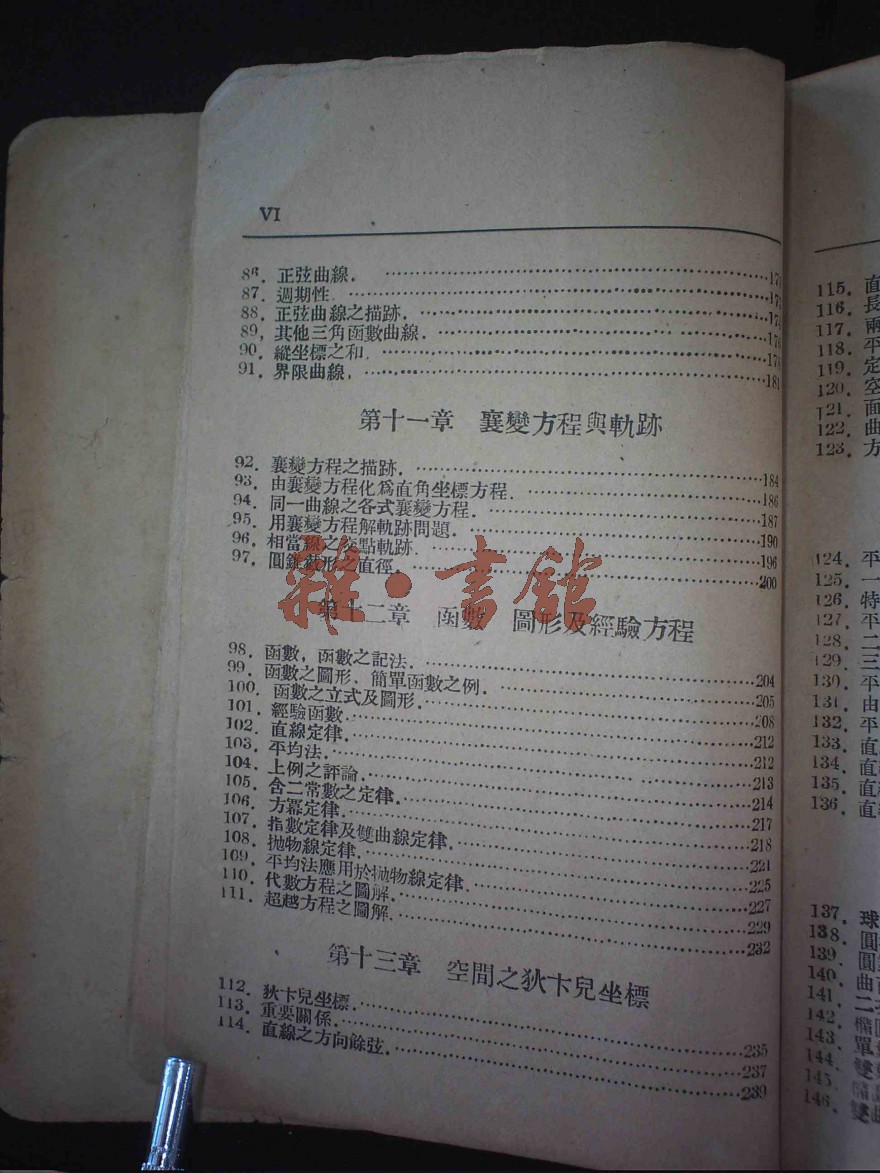 VI
86. 正弦曲線. 17
87. 週期性. 17
88. 正弦曲線之描跡. 174
89. 其他三角函數曲線. 176
90. 縱坐標之和. 178
91. 界限曲線. 181
第十一章 襄變方程與軌跡
92. 襄變方程之描跡. 184
93. 由襄變方程化爲直角坐標方程. 186
94. 同一曲線之各式襄變方程. 187
95. 用襄變方程解軌跡問題. 190
96. 相當線之交點軌跡. 196
97. 圓錐截形之直徑. 200
雜·書館
第十二章 函數 圖形及經驗方程
98. 函數,函數之記法. 204
99. 函數之圖形、簡單函數之例. 205
100. 函數之立式及圖形. 208
101. 經驗函數. 212
102. 直線定律. 212
103. 平均法. 213
104. 上例之評論. 214
105. 含二常數之定律. 217
106. 方冪定律. 218
107. 指數定律及雙曲線定律. 221
108. 拋物線定律. 225
109. 平均法應用於拋物線定律. 227
110. 代數方程之圖解. 229
111. 超越方程之圖解. 232
第十三章 空間之狄卞兒坐標
112. 狄卞兒坐標. 235
113. 重要關係. 237
114. 直線之方向餘弦. 239
115. 直
116. 長
117. 兩
118. 平
119. 定
120. 空
121. 面
122. 曲
123. 方
124. 平
125. 一
126. 特
127. 平
128. 二
129. 三
130. 平
131. 由
132. 平
133. 直
134. 直
135. 直
136. 直
137. 球
138. 圓
139. 圓
140. 曲
141. 二
142. 橢
143. 單
144. 雙
145.
146. 雙曲